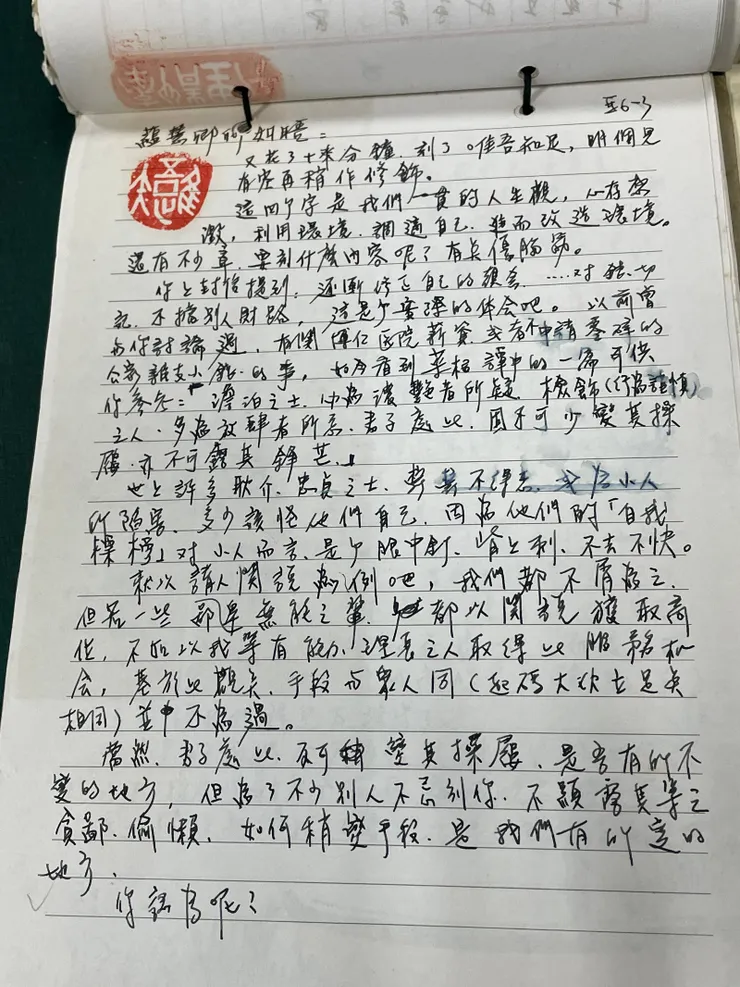 五6-3
卿卿如晤：
又花了十來分鐘，刻了「唯吾知足」，明個兒
有空再稍作修飾。
這四个字是我們一貫的人生觀，心存感
激，利用環境．調適自己．進而改造環境。
還有不少章．要刻什麼內容呢？有点傷腦筋。
你上封信提到．逐漸修正自己的觀念……对
不擋別人財路，這是个實際的体会吧。以前曾
与你討論過．有関博仁医院薪資或者不申請零碎的
公家雜支小錢的事，如今看到菜根譚中的一篇可供
你參考：澹泊之士．必為濃艷者所疑．檢飭(行為謹慎)
之人．多為放肆者所忌．君子處此．固不可少變其操
履．亦不可露其鋒芒。」
世上許多耿介．忠貞之士．小人
所陷害．多少該怪他們自己．因為他們的「自我
標榜」对小人而言．是个眼中釘．背上刺．不去不快。
就以請人関說為例吧，我們都不屑為之．
但若一些無能之輩．都以関說獲取高
位，不如以我等有能力．理直之人取得此服務机
会，基於此觀点．手段与衆人同(起碼大致立足点
相同)並不為過。
當然．君子處此．變其操履．是吾有所不
變的地方，但為了不少別人不忌刻你．不顯露其等之
貪鄙．偷懶．如何稍變手段．是我們有所變的
地方．
你認為呢？